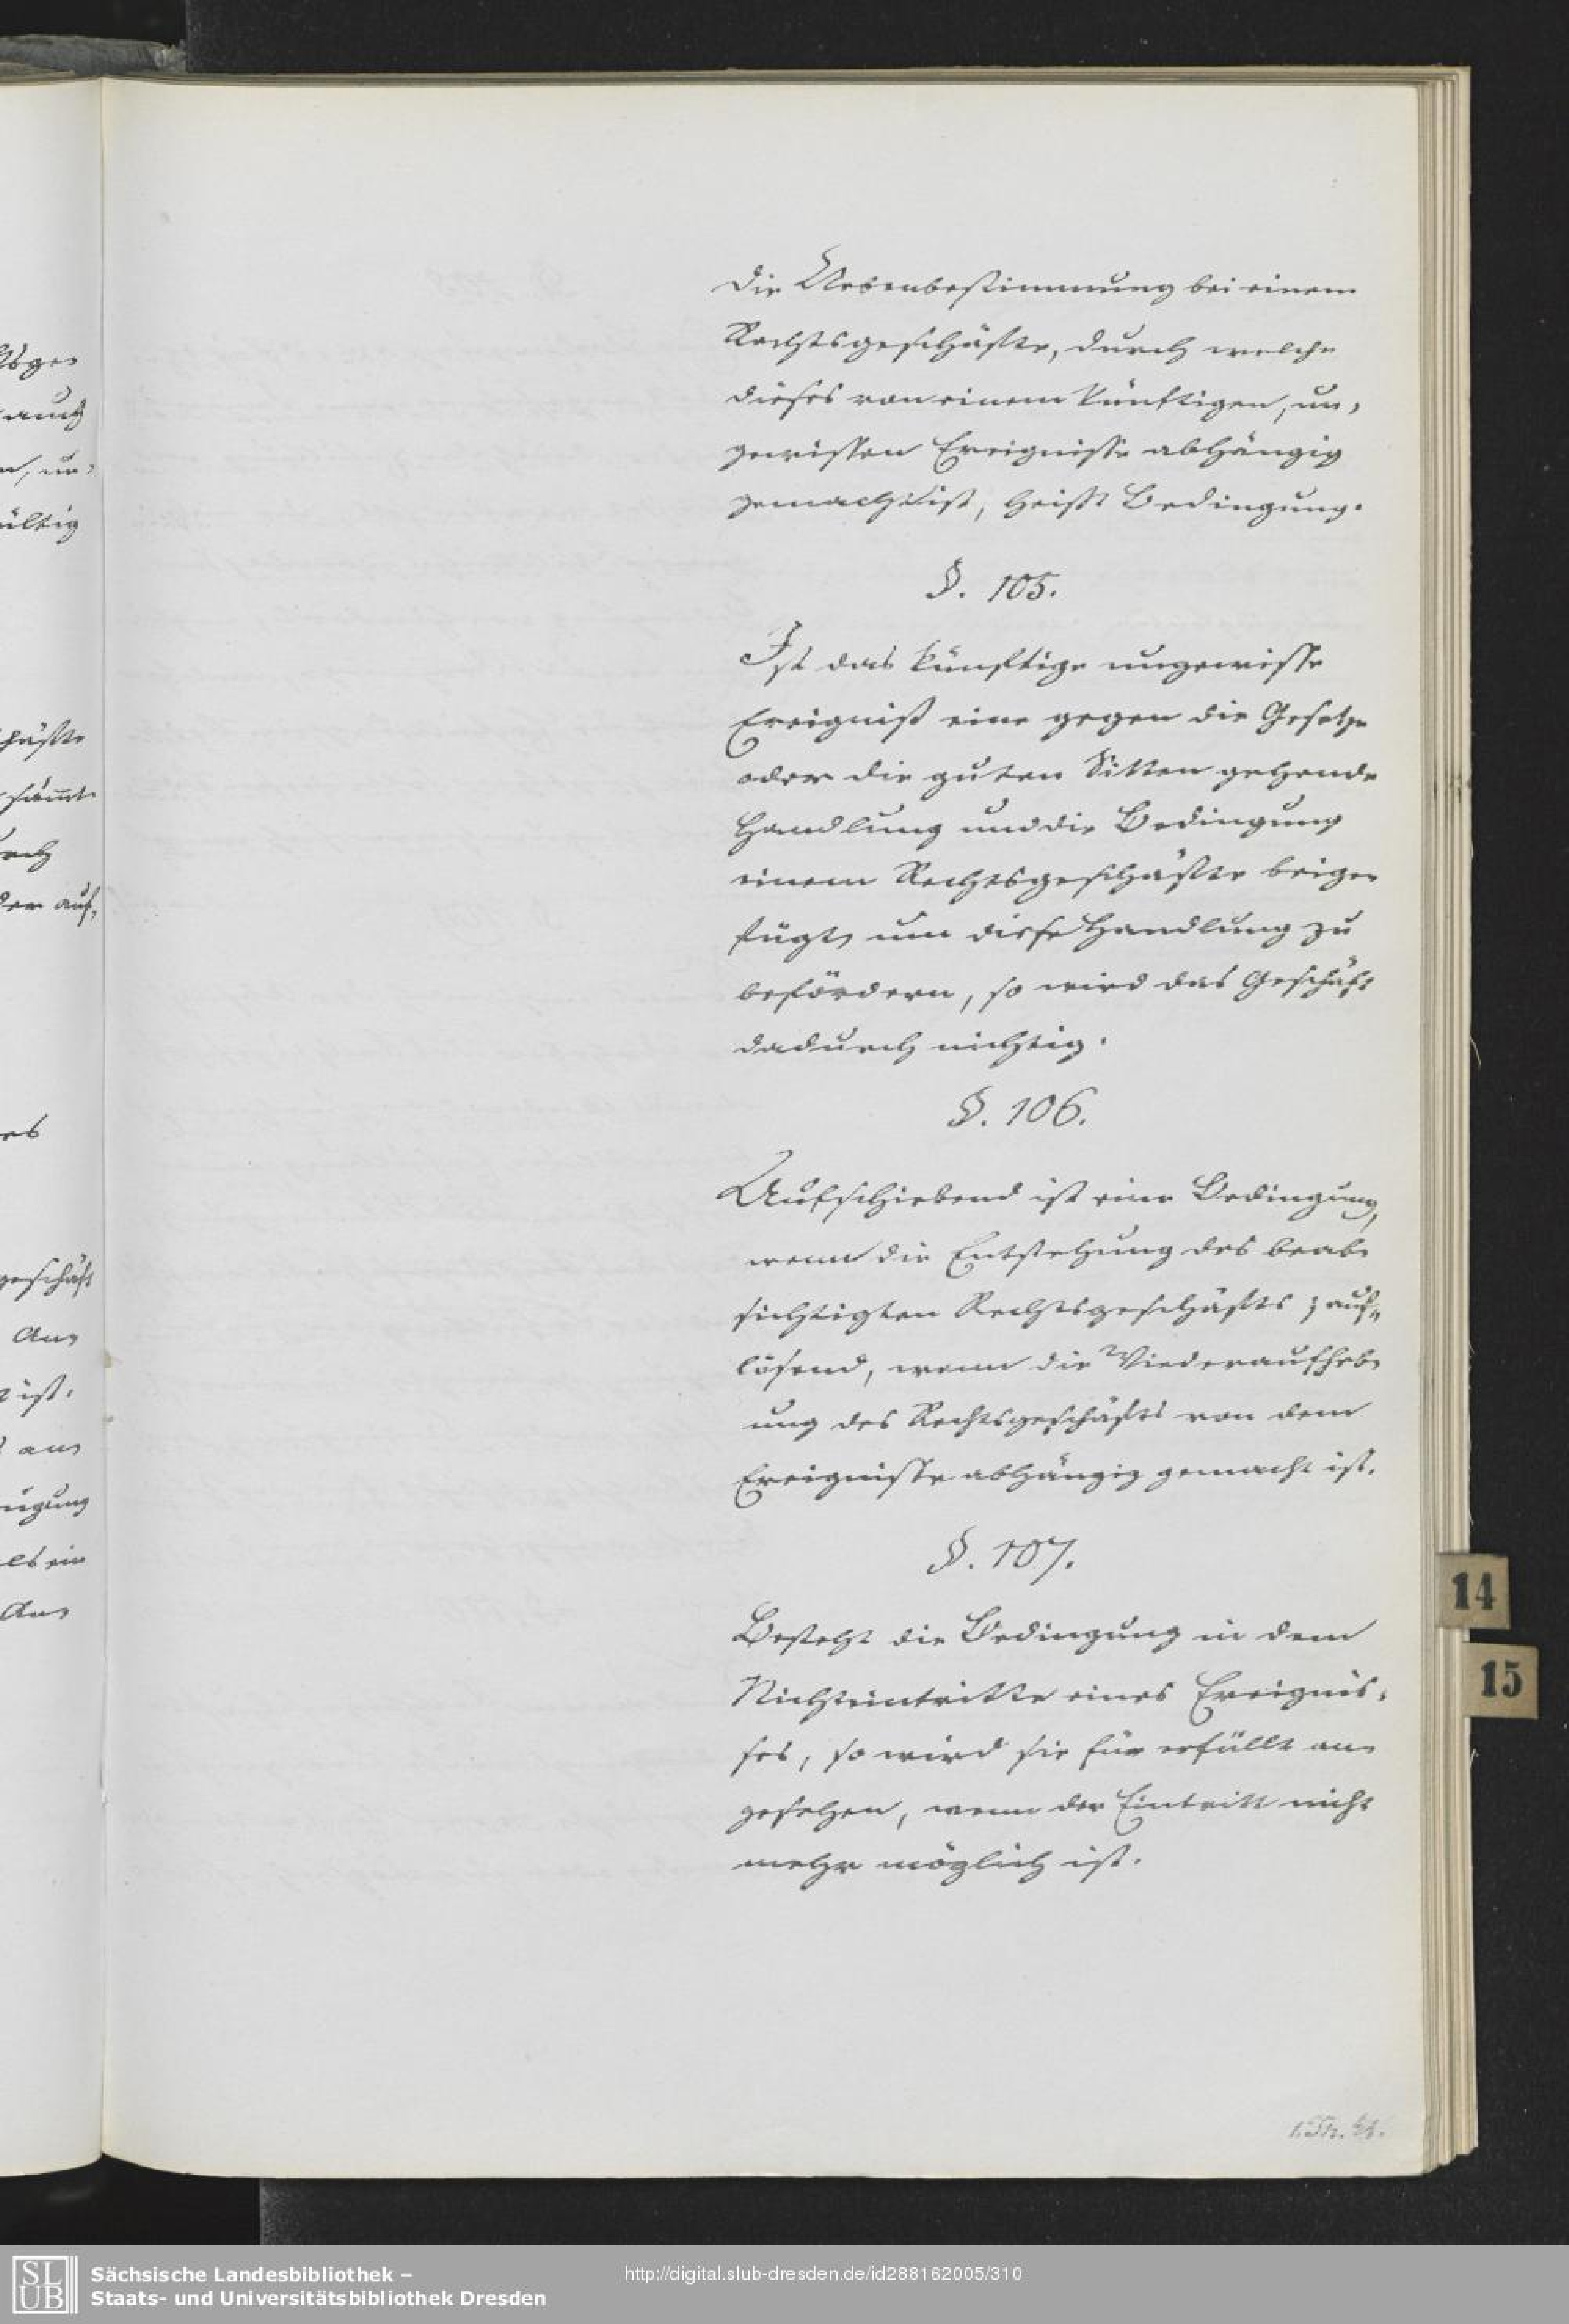 Die Nebenbestimmung bei einem
Rechtsgeschäfte, durch welche
dieses von einem künftigen, un-
gewissen Ereignisse abhängig
gemacht ist, heißt Bedingung.
§. 105.
Ist das künftige ungewisse
Ereigniß eine gegen die Gesetze
oder die guten Sitten gehende
Handlung und die Bedingung
einem Rechtsgeschäfte beige-
fügt, um diese Handlung zu
befördern, so wird das Geschäft
dadurch nichtig.
§. 106.
Aufschiebend ist eine Bedingung,
wenn die Entstehung des beab-
sichtigten Rechtsgeschäfts; auf-
lösend, wenn die Wiederaufheb-
ung des Rechtsgeschäfts von dem
Ereignisse abhängig gemacht ist.
§. 107.
Besteht die Bedingung in dem
Nichteintritte eines Ereignis-
ses, so wird sie für erfüllt an-
gesehen, wenn der Eintritt nicht
mehr möglich ist.
14
15
SLUB
Sächsische Landesbibliothek –
Staats- und Universitätsbibliothek Dresden
http://digital.slub-dresden.de/id288162005/310